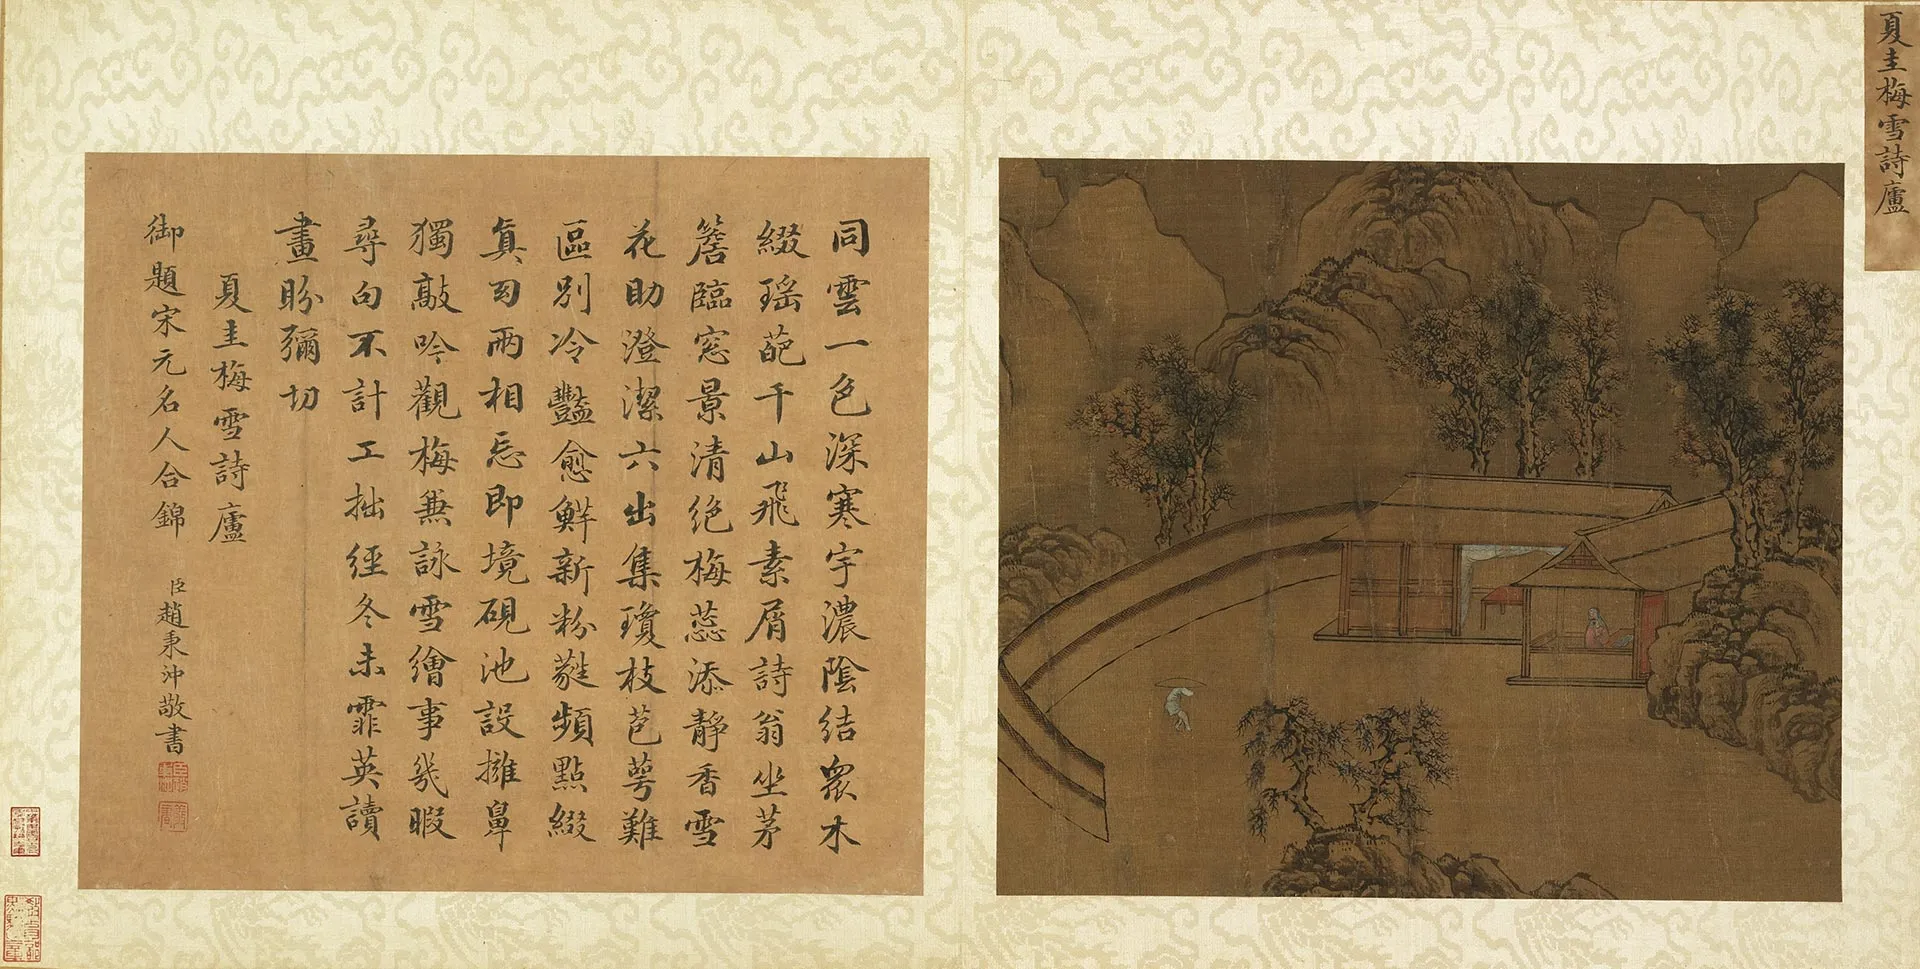 夏圭梅雪詩廬
同雲一色深寒宇濃陰結眾木
綴瑤葩千山飛素屑詩翁坐茅
簷臨窓景清絕梅蕊添靜香雪
花助澄潔六出集瓊枝苞萼難
區別冷豔愈鮮新粉蕤頻點綴
真可兩相忘即境硯池設擁鼻
獨敲吟觀梅兼詠雪繪事幾暇
尋句不計工拙經冬未霏英讀
畫盼彌切
夏圭梅雪詩廬
御題宋元名人合錦
臣趙秉沖敬書